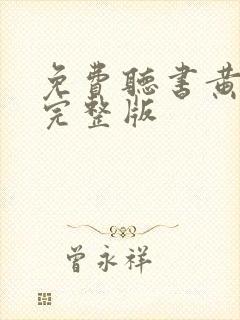 免費聽書黃
完整版
曾永祥